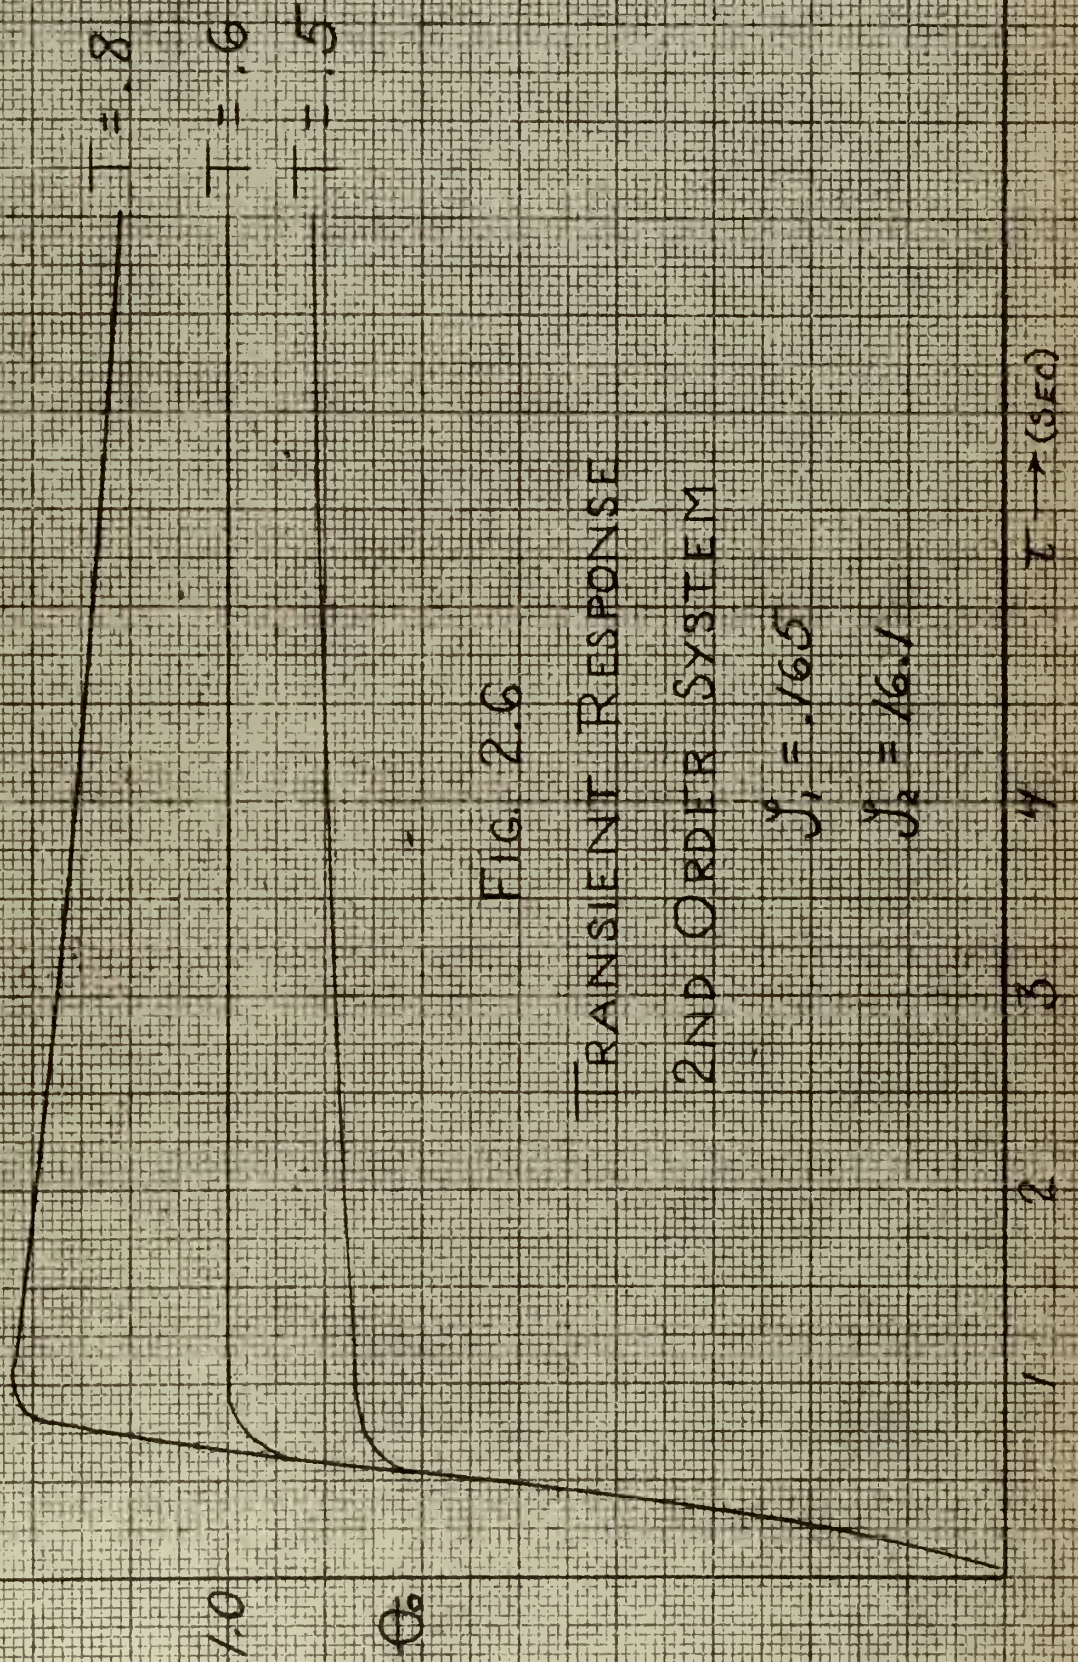 T = .8
T = .6
T = .5
1.0
θ₀
FIG. 2.6
TRANSIENT RESPONSE
2ND ORDER SYSTEM
ζ₁ = .165
ζ₂ = 16.1
1 2 3 4
t → (SEC)